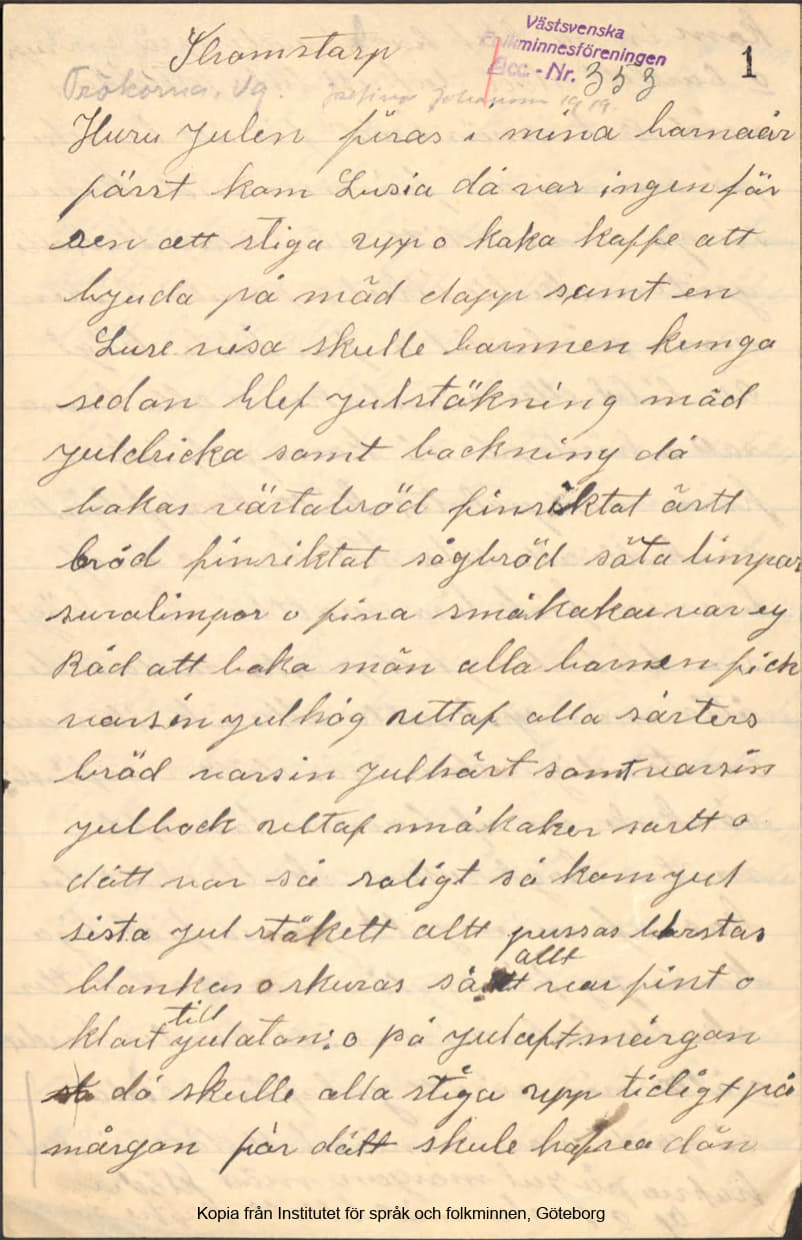 Thomstarp
Västsvenska
Folkminnesföreningen
Acc.-Nr. 353
1
Trökörna, Vg. Josefina Johansson 1919
Huru Julen firas i mina barnaår
färst kom Lusia då var ingen får
sen att stiga upp o kaka kaffe att
byuda på mäd dapp samt en
Luse visa skulle barnnen kunga
sedan blef julstäkning mäd
juldricka samt backning då
bakas värtabröd finsiktat ärtt
bröd finsiktat sågbröd säta limpar
suralimpor o fina småkakar var ey
Råd att baka män alla barnen fick
varsin julhög uttaf alla sårters
bröd varsin julhärt samt varsin
julbock uttaf småkaker sartt o
dätt var så roligt så kom jul
sista jul stäkett allt pussas borstas
blankas o skuras så allt var fint o
klart till julaton: o på julaftmårgan
då skulle alla stiga upp tidigt på
mårgon får dätt skule hafrea dän
Kopia från Institutet för språk och folkminnen, Göteborg